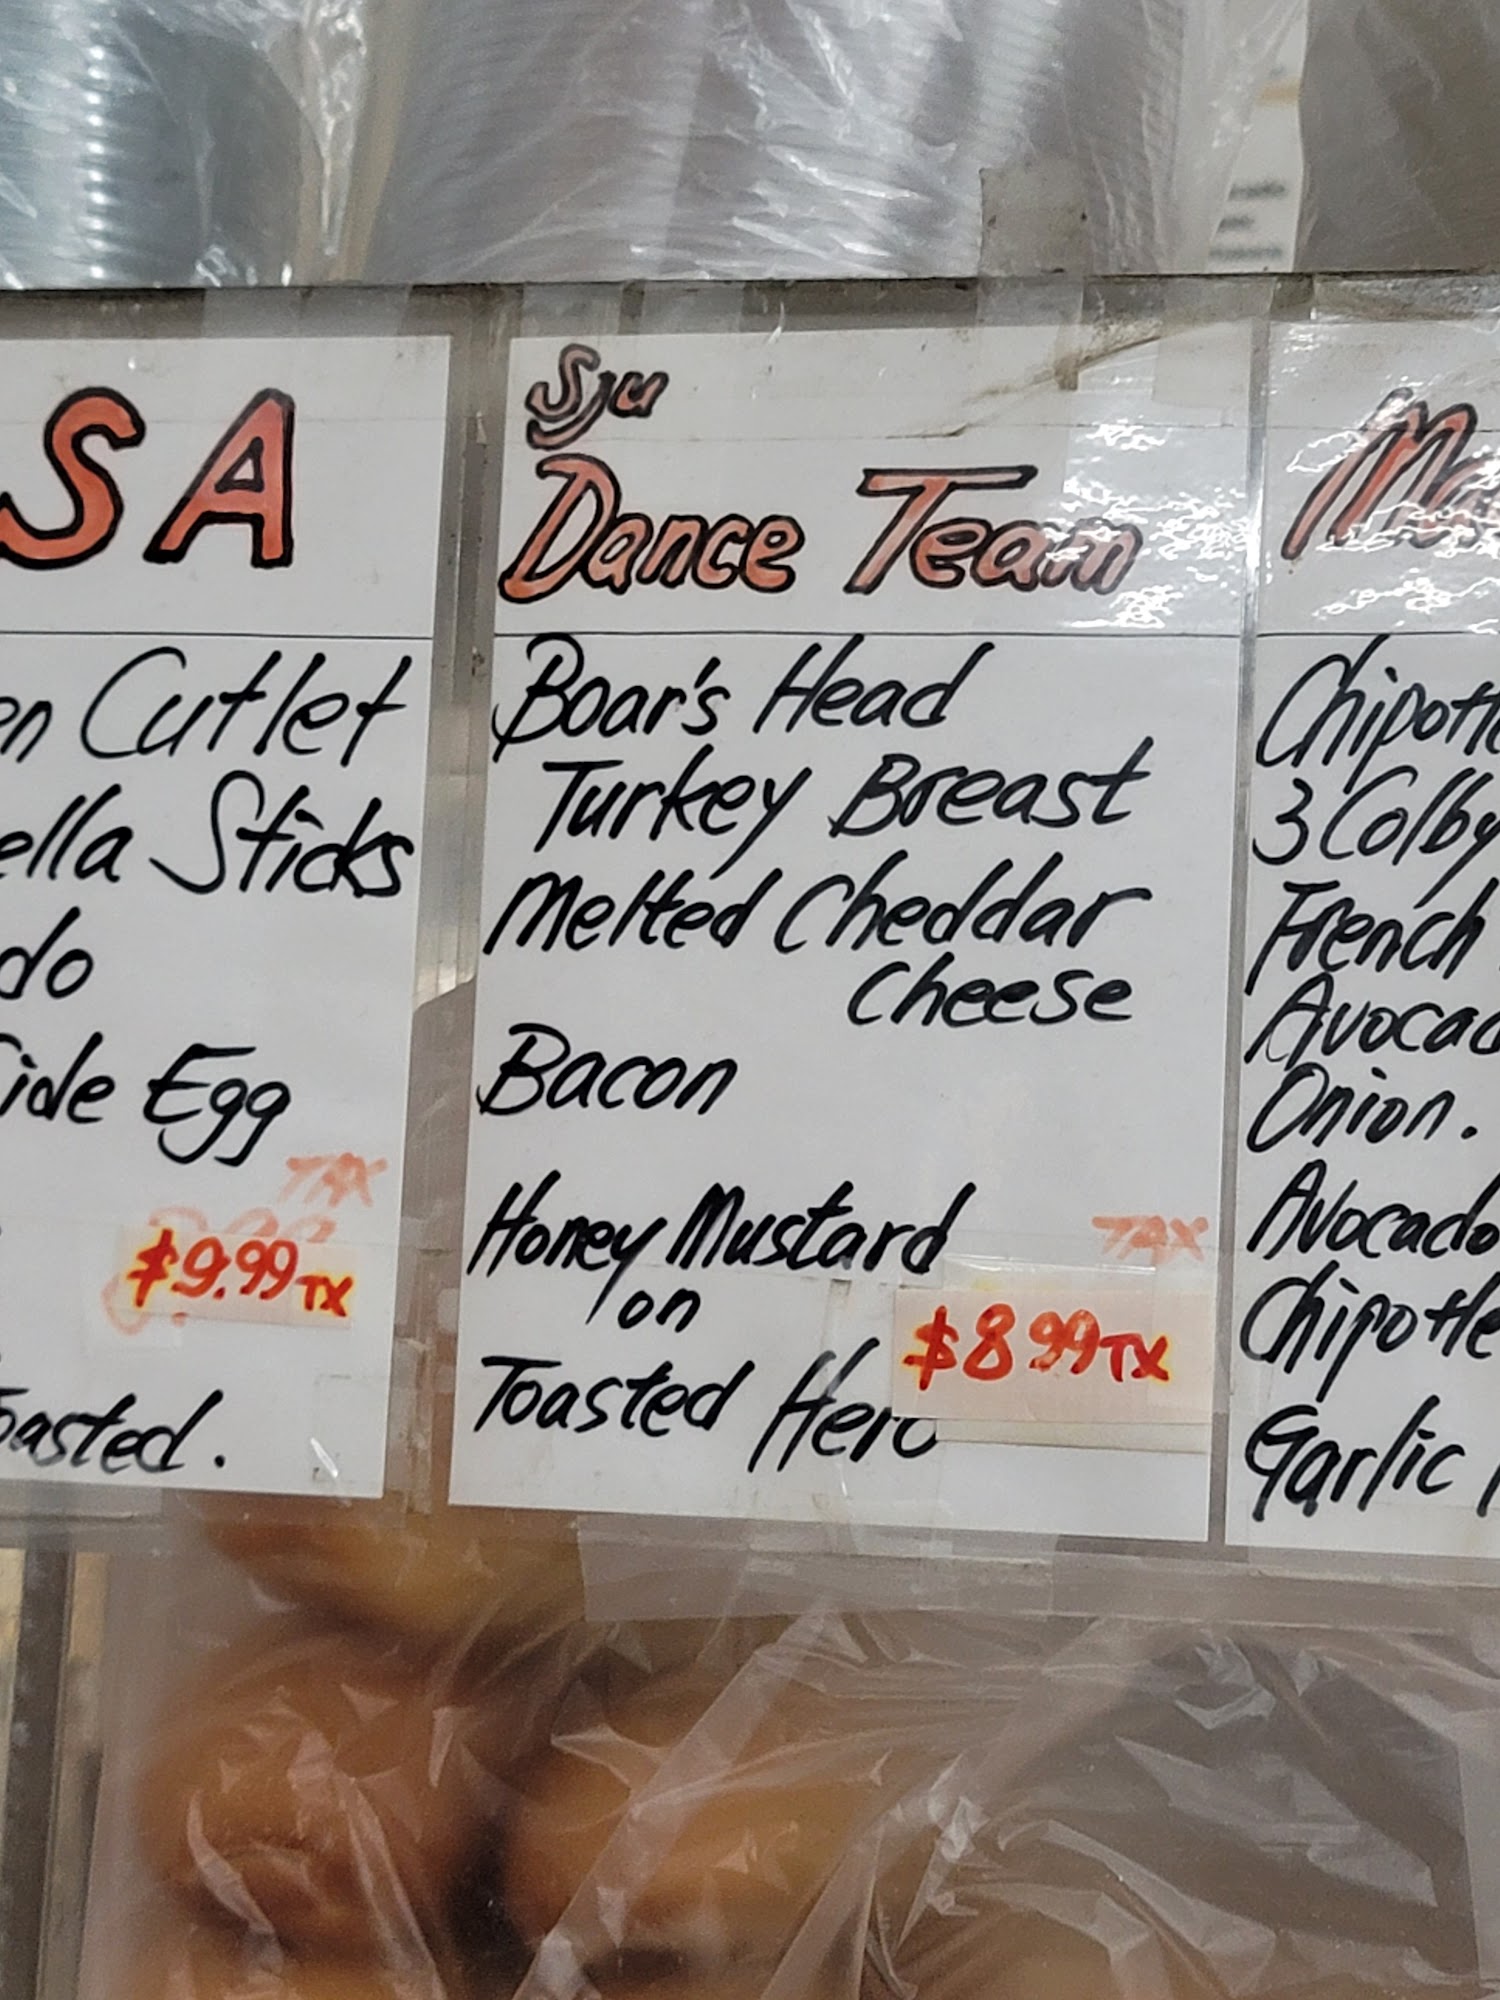 SA
Cutlet
Sticks
Side Egg
TAX
$9.99 TX
Sju
Dance Team
Boar's Head
Turkey Breast
Melted Cheddar
Cheese
Bacon
Honey Mustard
on
Toasted Hero
TAX
$8.99 TX
3 Colby
French
Onion.
Avocado
Garlic